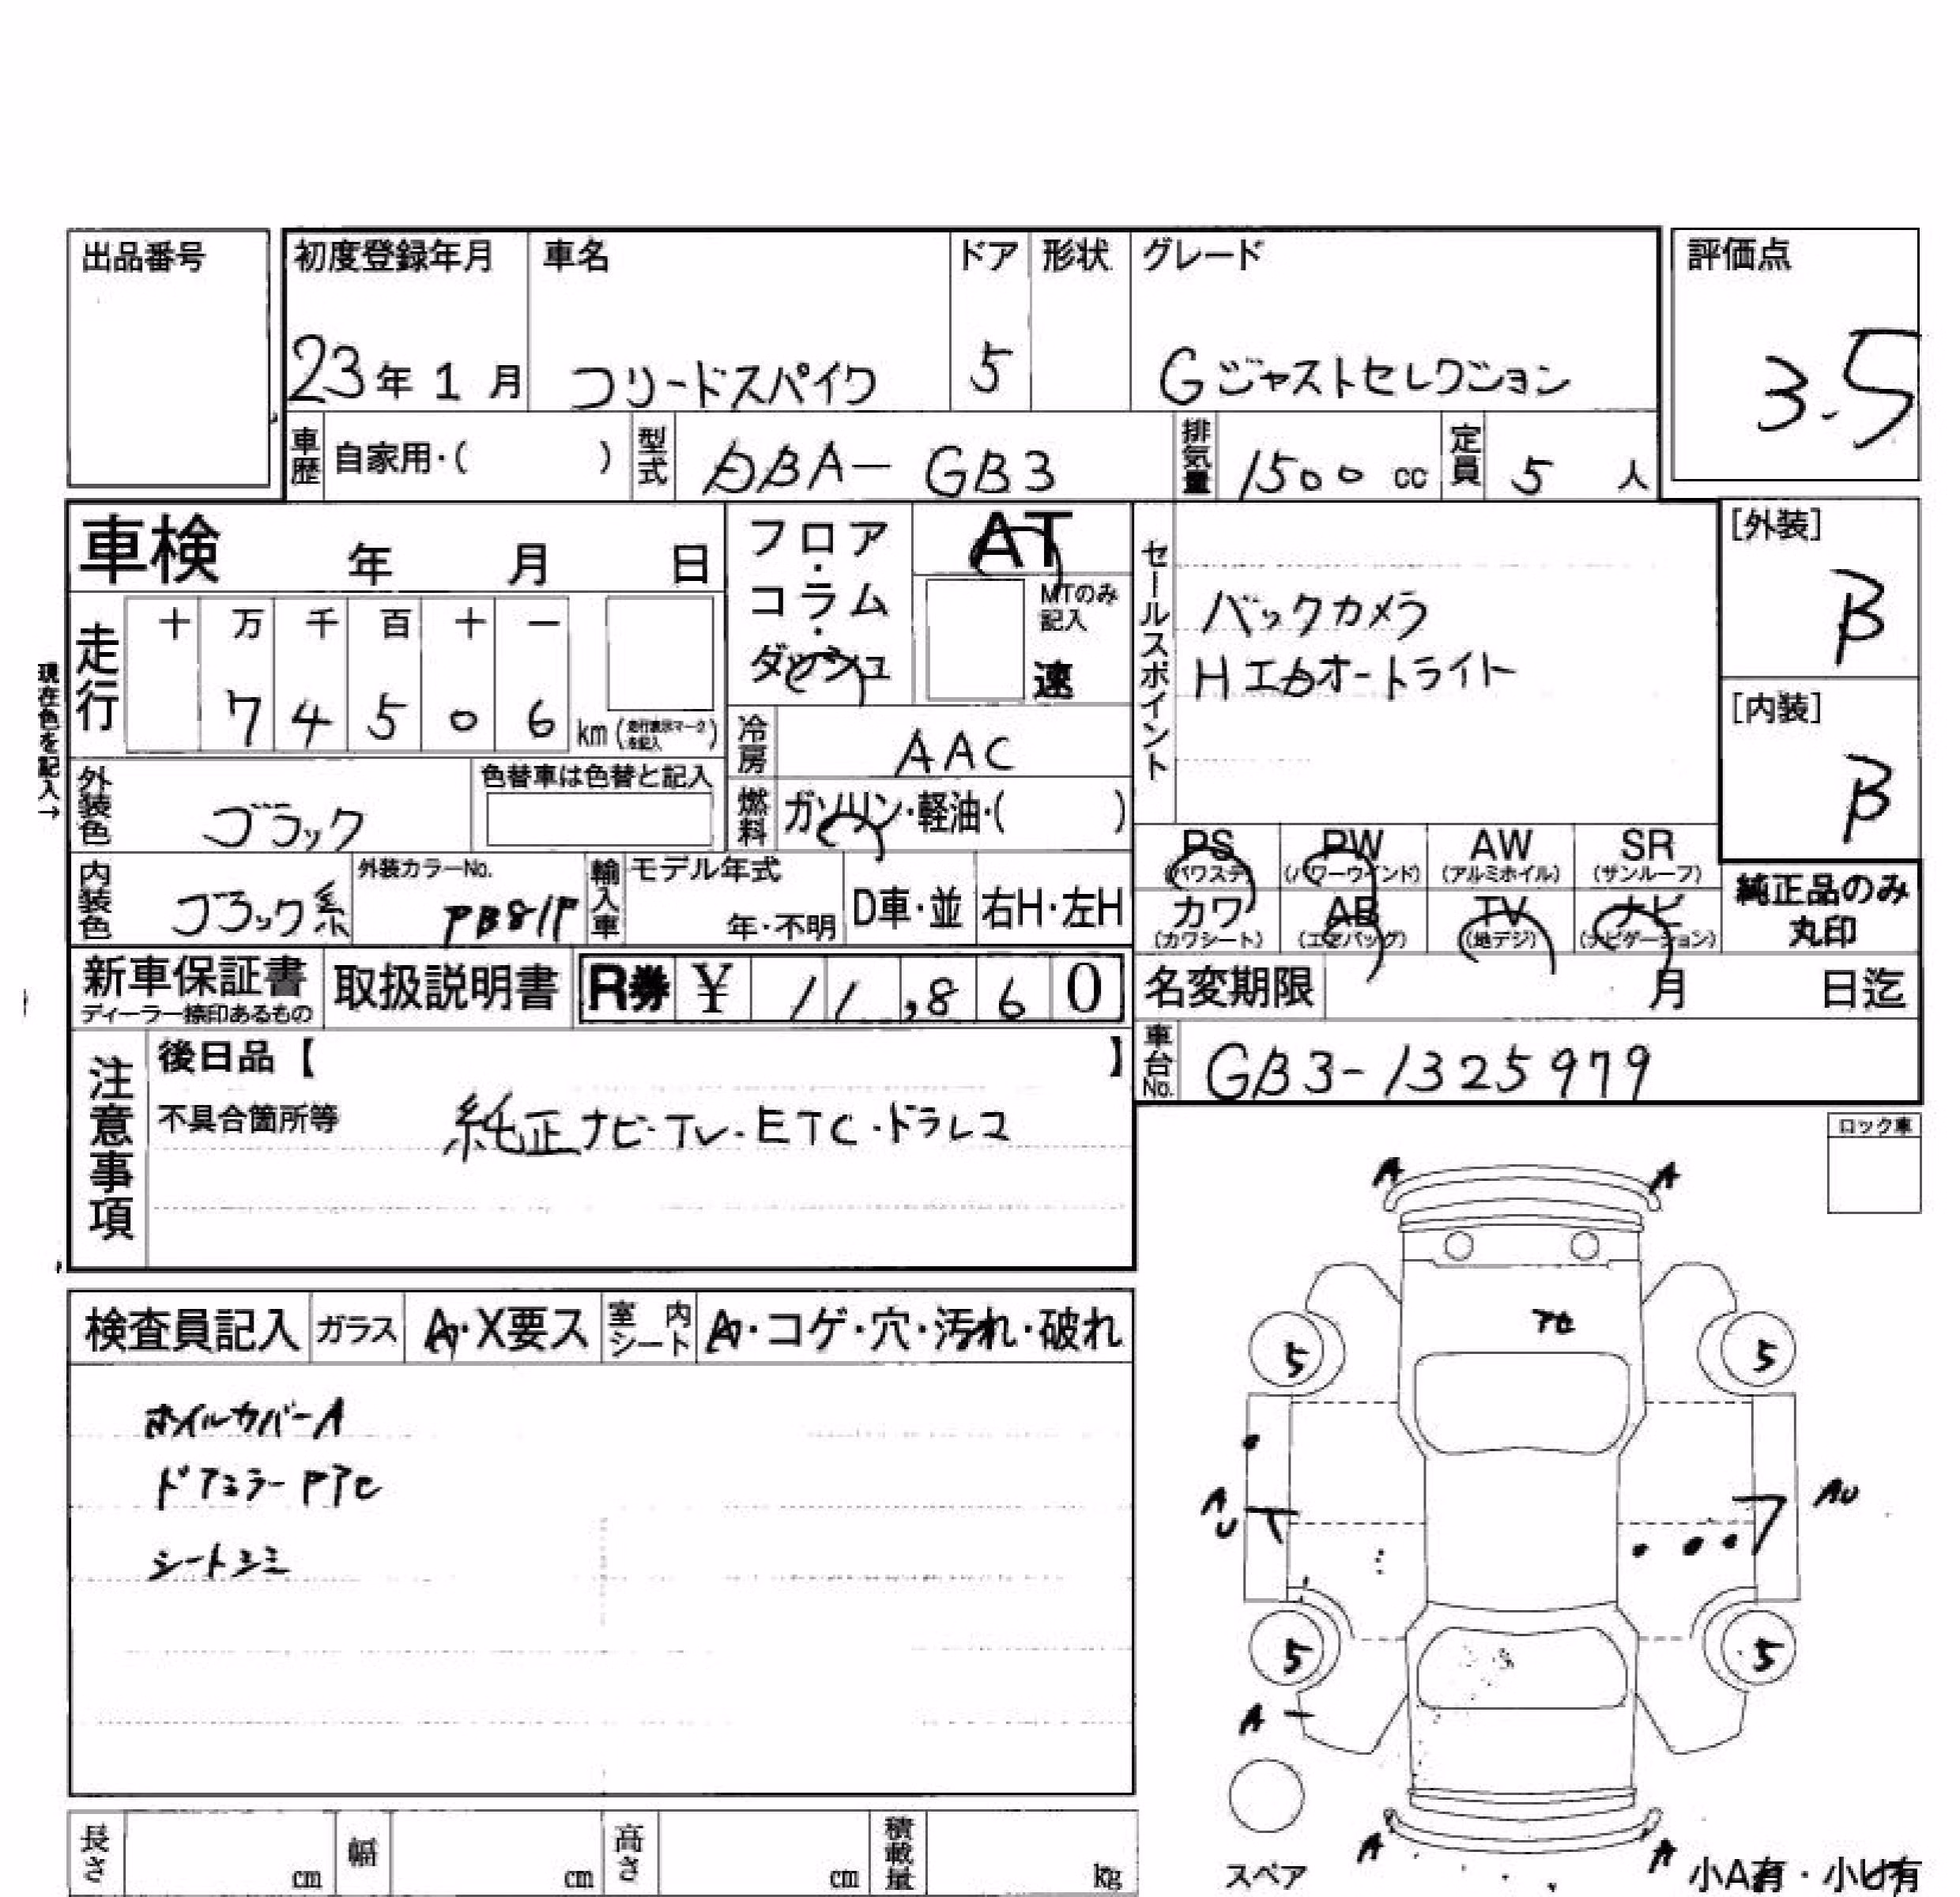 出品番号
初度登録年月 車名 ドア 形状 グレード 評価点
23年1月 フリードスパイク 5 Gジャストセレクション 3.5
車歴 自家用・( ) 型式 DBA-GB3 排気量 1500 cc 定員 5 人
車検 年 月 日
フロア・コラム・ダッシュ
AT
MTのみ記入
速
走行 十 万 千 百 十 一
7 4 5 0 6 km
現在色を記入→
冷房 AAC
燃料 ガソリン・軽油・( )
外装色 ブラック
色替車は色替と記入
内装色 ブラック系
外装カラーNo.
輸入車 モデル年式
年・不明 D車・並 右H・左H
セールスポイント
バックカメラ
オートライト
[外装]
B
[内装]
B
PS PW AW SR
(パワステ) (パワーウインド) (アルミホイル) (サンルーフ)
カワ AB TV ナビ
(カワシート) (エアバッグ) (地デジ) (ナビゲーション)
純正品のみ
丸印
新車保証書
ディーラー捺印あるもの
取扱説明書 R券 ¥ 11,860
名変期限 月 日迄
車台No. GB3-1325979
注意事項
後日品【 】
不具合箇所等 純正ナビ・TV・ETC・ドラレコ
ロック車
検査員記入 ガラス A・X要ス 室内シート A・コゲ・穴・汚れ・破れ
ホイルカバーA
ドアミラー
シートシミ
A A
5 5
A
U AU
5 5
A
A A
スペア
小A有・小U有
長さ cm 幅 cm 高さ cm 積載量 kg